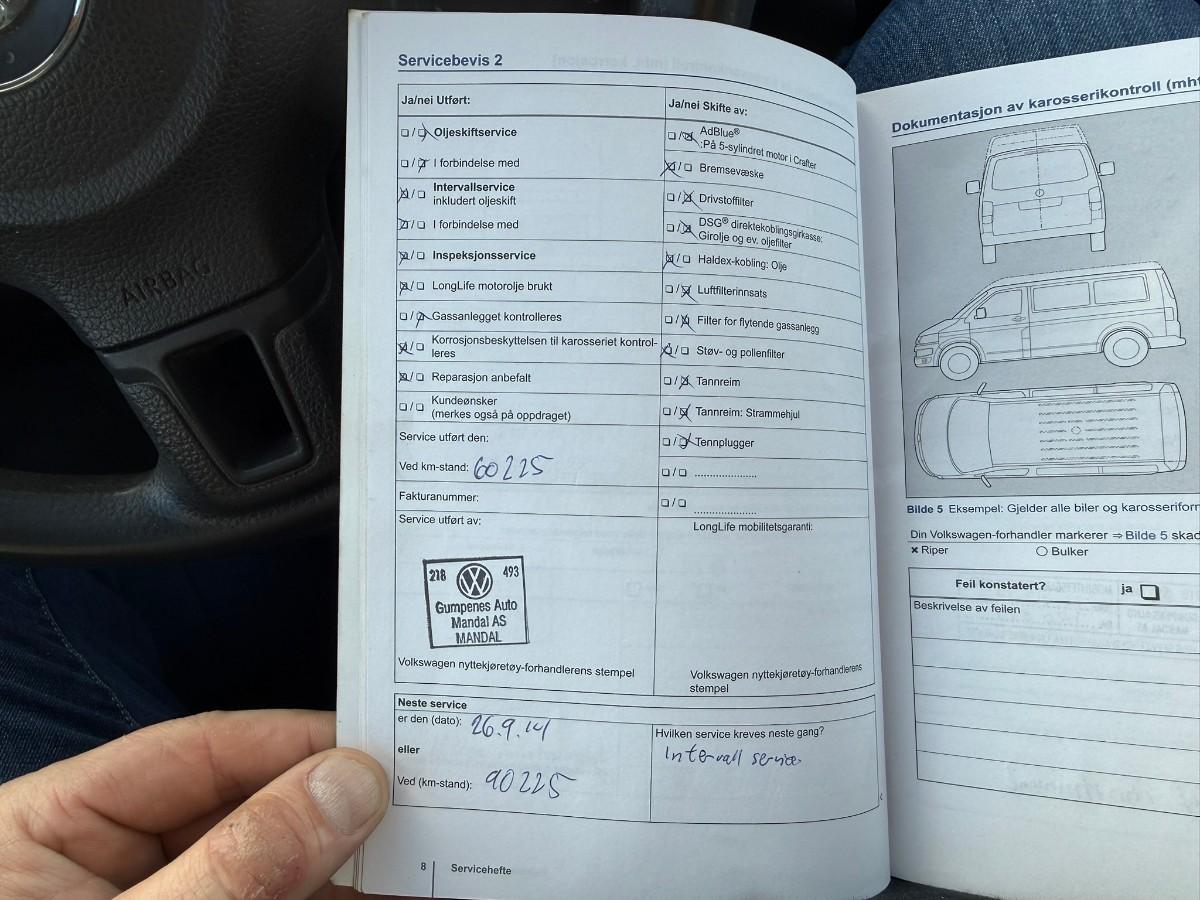 AIRBAG
Servicebevis 2
Ja/nei Utført:
Oljeskiftservice
I forbindelse med
Intervallservice
inkludert oljeskift
I forbindelse med
Inspeksjonsservice
LongLife motorolje brukt
Gassanlegget kontrolleres
Korrosjonsbeskyttelsen til karosseriet kontrol-
leres
Reparasjon anbefalt
Kundeønsker
(merkes også på oppdraget)
Service utført den:
Ved km-stand: 60225
Fakturanummer:
Service utført av:
218 493
Gumpenes Auto
Mandal AS
MANDAL
Volkswagen nyttekjøretøy-forhandlerens stempel
Ja/nei Skifte av:
AdBlue®
:På 5-sylindret motor i Crafter
Bremsevæske
Drivstoffilter
DSG® direktekoblingsgirkasse:
Girolje og ev. oljefilter
Haldex-kobling: Olje
Luftfilterinnsats
Filter for flytende gassanlegg
Støv- og pollenfilter
Tannreim
Tannreim: Strammehjul
Tennplugger
LongLife mobilitetsgaranti:
Volkswagen nyttekjøretøy-forhandlerens
stempel
Neste service
er den (dato): 26.9.14
eller
Ved (km-stand): 90225
Hvilken service kreves neste gang?
Intervall service
8 Servicehefte
Dokumentasjon av karosserikontroll (mht
Bilde 5 Eksempel: Gjelder alle biler og karosseriforn
Din Volkswagen-forhandler markerer ⇒ Bilde 5 skad
× Riper
○ Bulker
Feil konstatert?
ja
Beskrivelse av feilen